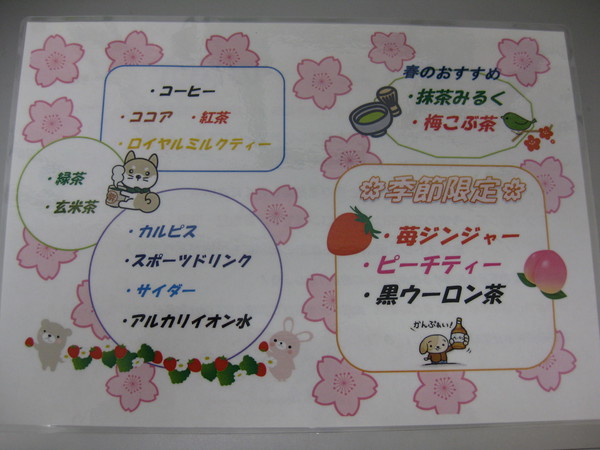 ・コーヒー
・ココア ・紅茶
・ロイヤルミルクティー
・緑茶
・玄米茶
・カルピス
・スポーツドリンク
・サイダー
・アルカリイオン水
春のおすすめ
・抹茶みるく
・梅こぶ茶
季節限定
・苺ジンジャー
・ピーチティー
・黒ウーロン茶
かんぱぁい!